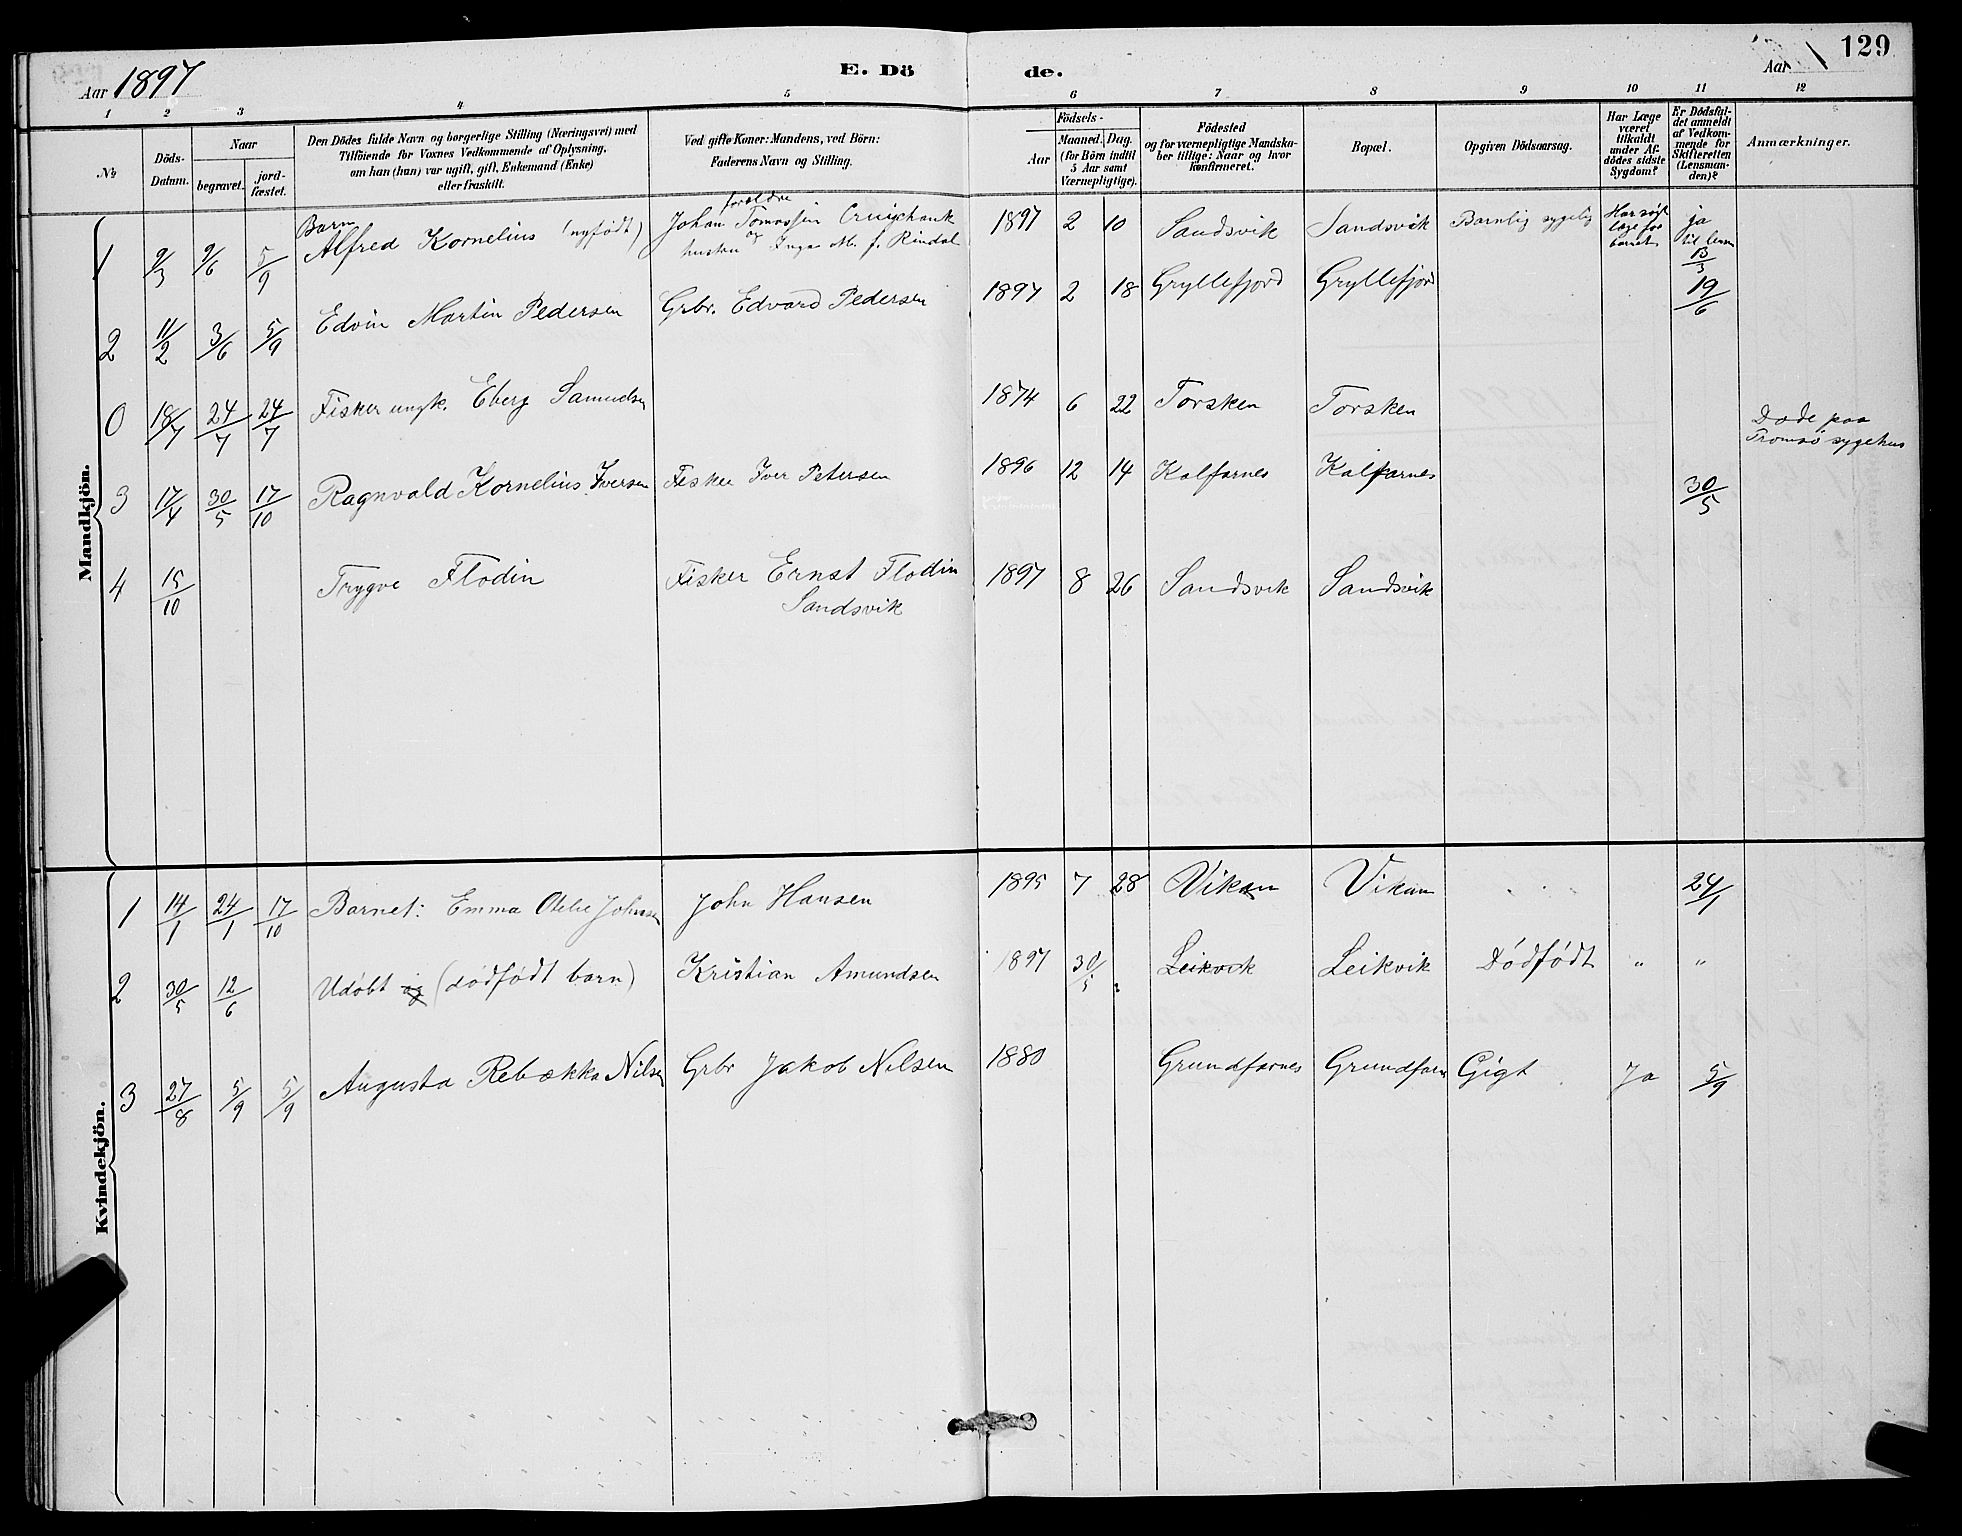 Aar 1897
E. Dö de.
Aar
129
1 2 3 4 5 6 7 8 9 10 11 12
№
Döds-Datum.
Naar
begravet.
jord-fæstet.
Den Dödes fulde Navn og borgerlige Stilling (Næringsvei) med
Tilföiende for Voxnes Vedkommende af Oplysning,
om han (hun) var ugift, gift, Enkemand (Enke)
eller fraskilt.
Ved gifte Koner: Mandens, ved Börn:
Faderens Navn og Stilling.
Födsels-
Aar
Maaned. Dag.
(for Börn indtil
5 Aar samt
Værnepligtige).
Födested
og for værnepligtige Mandska-
ber tillige: Naar og hvor
konfirmeret.
Bopæl.
Opgiven Dödsaarsag.
Har Læge
været
tilkaldt
under Af-
dödes sidste
Sygdom?
Er Dödsfal-
det anmeldt
af Vedkom-
mende for
Skifteretten
(Lensman-
den)?
Anmærkninger.
Mandkjön.
1 9/3 2/6 5/9 Barn Alfred Kornelius (nyfødt) forældre Johan Tomassen Cruickhank og hustru Inga M. f. Rindal 1897 2 10 Sandsvik Sandsvik Barnlig sygelig Har søgt læge for barnet ja til lensm 13/3
2 11/2 3/6 5/9 Edvin Martin Pedersen Grbr. Edvard Pedersen 1897 2 18 Gryllefjord Gryllefjord 19/6
0 18/7 24/7 24/7 Fisker ungk. Eberg Samuelsen 1874 6 22 Torsken Torsken Døde paa
Tromsø sygehus
3 17/4 30/5 17/10 Ragnvald Kornelius Iversen Fisker Iver Petersen 1896 12 14 Kalfarnes Kalfarnes 30/5
4 15/10 Trygve Flodin Fisker Ernst Flodin 1897 8 26 Sandsvik Sandsvik
Sandsvik
Kvindekjön.
1 14/1 24/1 17/10 Barnet: Emma Otelie Johnsen John Hansen 1895 7 28 Vikan Vikan 24/1
2 30/5 12/6 Udøbt og (dødfødt barn) Kristian Amundsen 1897 30/5 Leikvik Leikvik Dødfødt " "
3 27/8 5/9 5/9 Augusta Rebækka Nilsen Grbr Jakob Nilsen 1880 Grundfarnes Grundfarn Gigt Ja 5/9